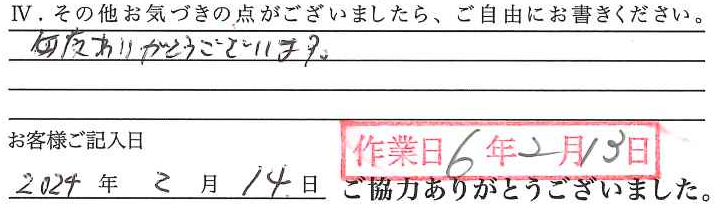 Ⅳ．その他お気づきの点がございましたら、ご自由にお書きください。
毎度ありがとうございます。
お客様ご記入日
作業日6年2月13日
2024年2月14日
ご協力ありがとうございました。